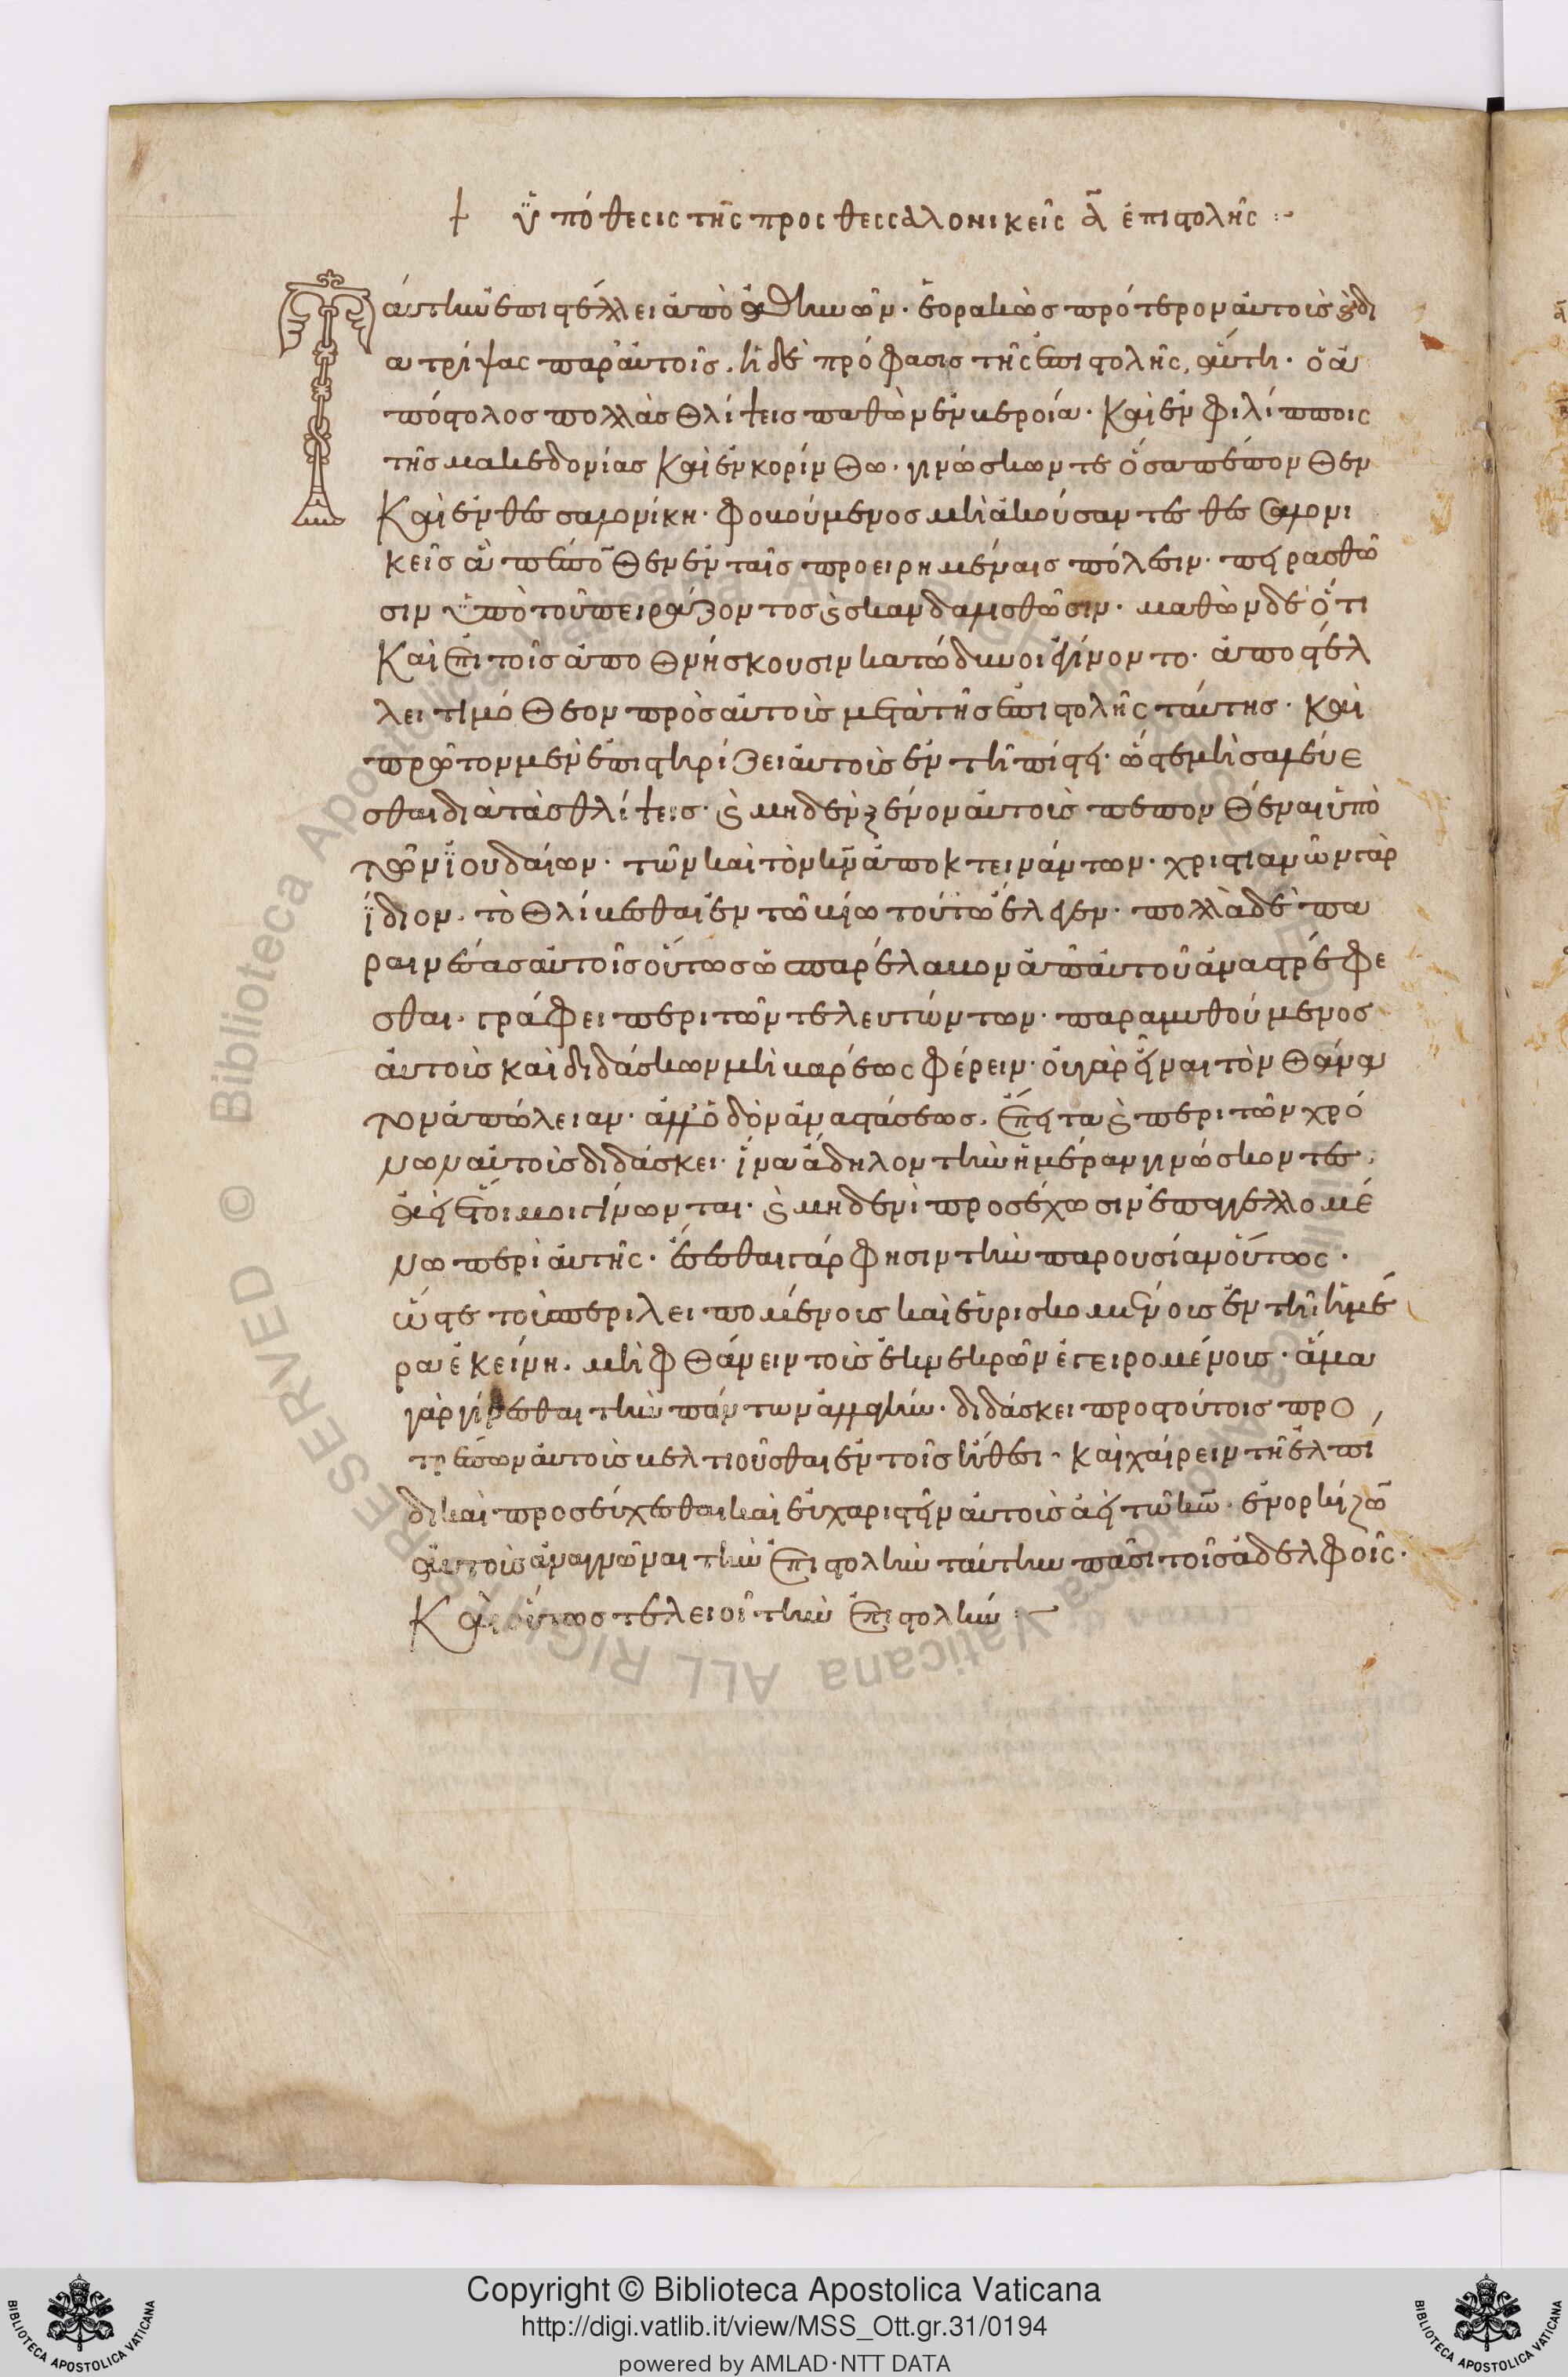 † ὑπόθεσις τῆς προς θεσσαλονικεῖς ᾱ ἐπιστολῆς :~
Ταύτην ἐπιστέλλει ἀπὸ ἀθηνῶν· ἑορακὼς πρότερον αὐτοὺς ϗ δι
ατρίψας παρ' αὐτοῖς. ἡ δὲ πρόφασις τῆς ἐπιστολῆς, αὕτη· ὁ ἀ
πόστολος πολλὰς θλίψεις παθὼν ἐν βεροία· καὶ ἐν φιλίπποις
τῆς μακεδονίας καὶ ἐν κορίνθω· γινώσκων τε ὅσα πέπονθεν
καὶ ἐν θεσσαλονίκη· φοβούμενος μὴ ἀκούσαντες θεσσαλονι
κεῖς ἃ πέπο̅θεν ἐν ταῖς προειρημέναις πόλεσιν· πειρασθῶ
σιν ὑπὸ τοῦ πειράζοντος ϗ σκανδαλισθῶσιν· μαθὼν δὲ ὅτι
καὶ ἐπὶ τοῖς ἀποθνήσκουσιν κατώδυνοι ἐγίνοντο· ἀποστέλ
λει τιμόθεον πρὸς αὐτοὺς μετὰ τῆς ἐπιστολῆς ταύτης· καὶ
πρῶτον μὲν ἐπιστηρίζει αὐτοὺς ἐν τῆ πίστει· ὥστε μὴ σαλεύε
σθαι διὰ τὰς θλίψεις· ϗ μηδὲν ξένον αὐτοὺς πεπονθέναι ὑπὸ
τῶν ϊουδαίων· τῶν καὶ τὸν κ̅ν̅ ἀποκτεινάντων· χριστιανῶν γὰρ
ἴδιον. τὸ θλίβεσθαι ἐν τῶ βίω τούτω ἔλεγεν· πολλὰ δὲ πα
ραινέσας αὐτοῖς οὕτως ὡς παρέλαβον ἀπ' αὐτοῦ ἀναστρέφε
σθαι. γράφει περι τῶν τελευτώντων· παραμυθούμενος
αὐτοὺς καὶ διδάσκων μὴ βαρέως φέρειν· οὐ γὰρ εἶναι τὸν θάνα
τον ἀπώλειαν· ἀλλ' ὁδὸν ἀναστάσεως. ἔπειτα ϗ περι τῶν χρό
νων αὐτοὺς διδάσκει· ἵνα ἄδηλον τὴν ἡμέραν γινώσκοντες.
ἀεὶ ἕτοιμοι γίνωνται· ϗ μηδενὶ προσέχωσιν ἐπαγγελλομέ
νω περὶ αὐτῆς· ἔσεσθαι γάρ φησιν τὴν παρουσίαν οὕτως·
ὥστε τοὺς περιλειπομένους καὶ εὑρισκομένους ἐν τῆ ἡμέ
ρα ἐκείνη. μὴ φθάνειν τοὺς ἐκ νεκρῶν ἐγειρομένους· ἅμα
γὰρ γίνεσθαι τὴν πάντων ἀλλαγήν· διδάσκει προς τούτοις προ
τρέπων αὐτοὺς βελτιοῦσθαι ἐν τοῖς ἤθεσι· καὶ χαίρειν τῆ ἐλπί
δι καὶ προσεύχεσθαι καὶ εὐχαριστεῖν αὐτοὺς ἀεὶ τῶ κ̅ω̅· ἐνορκίζω̅
αὐτοὺς ἀναγνῶναι τὴν ἐπιστολὴν ταύτην πᾶσι τοῖς ἀδελφοῖς·
Καὶ οὕτως τελειοῖ τὴν ἐπιστολήν :~
Copyright © Biblioteca Apostolica Vaticana
http://digi.vatlib.it/view/MSS_Ott.gr.31/0194
powered by AMLAD·NTT DATA